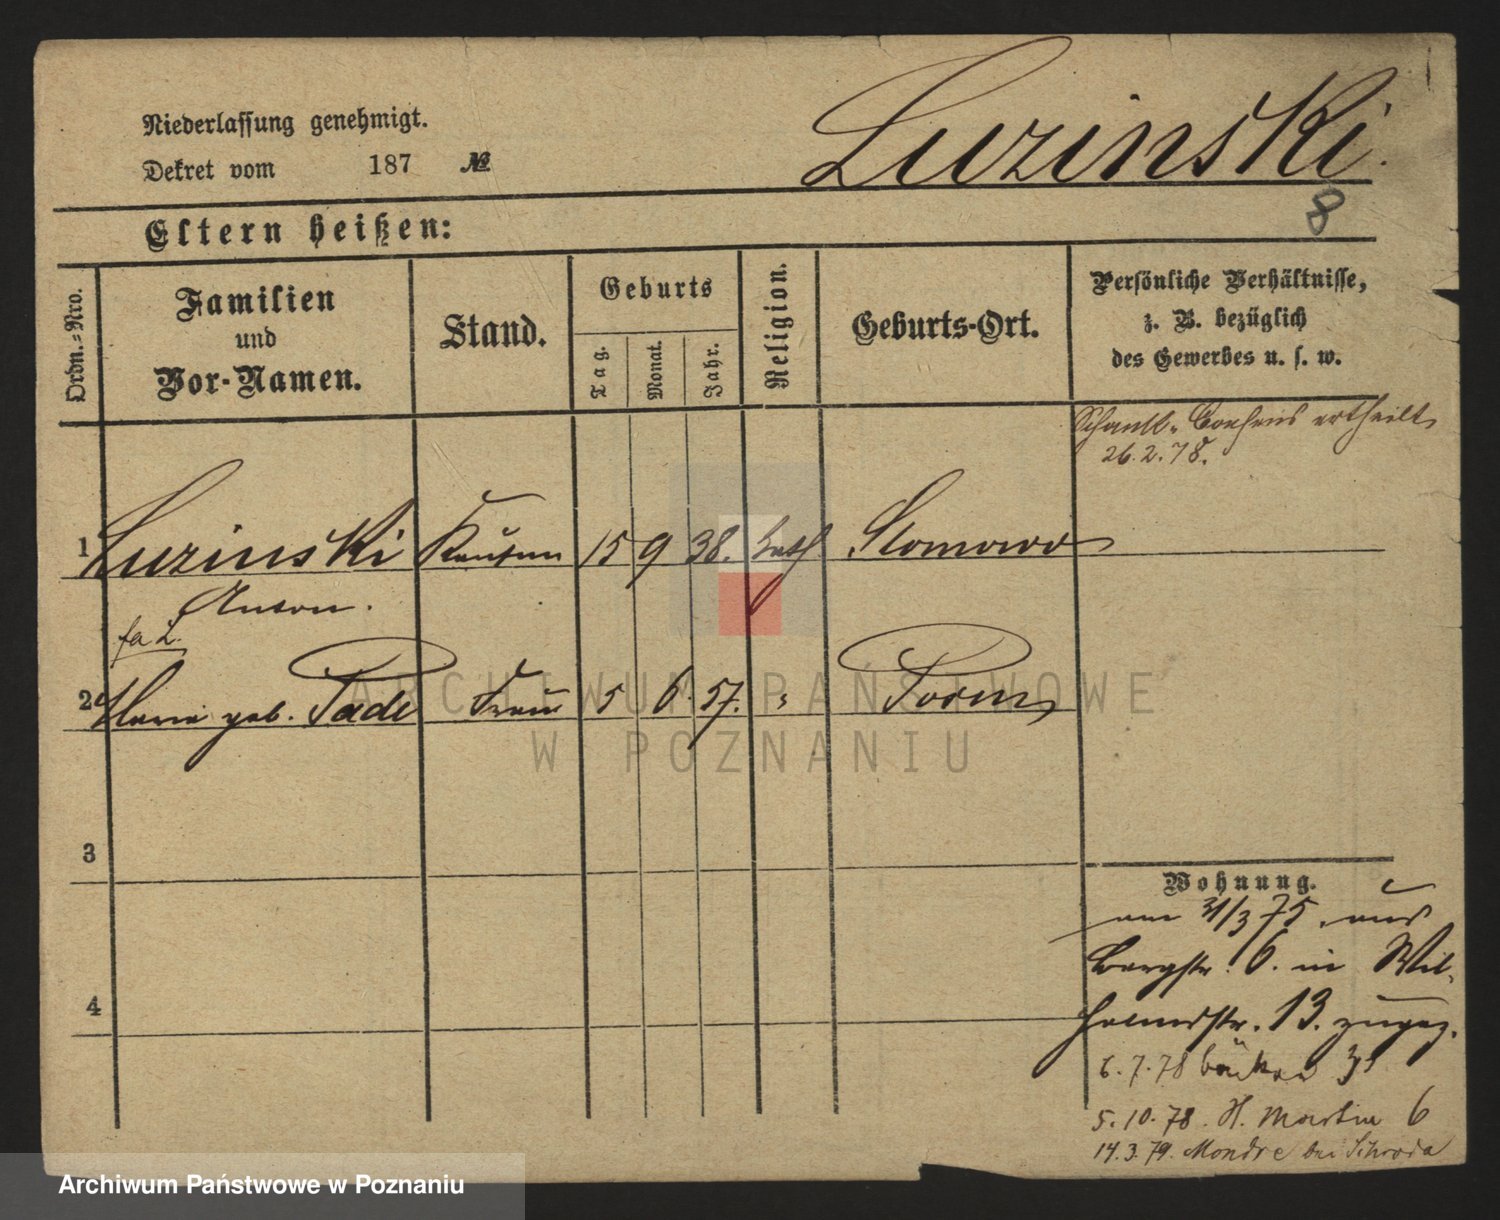 Niederlassung genehmigt.
Dekret vom 187 №
Luzinski.
8
Eltern heißen:
Ordn.-Nro.
Familien
und
Vor-Namen.
Stand.
Geburts
Tag.
Monat.
Jahr.
Religion.
Geburts-Ort.
Persönliche Verhältnisse,
z. B. bezüglich
des Gewerbes u. s. w.
Schank-Consens ertheilt
26.2.78.
1 Luzinski Kaufm 15 9 38. kath Slomowo
Anton.
fa L.
2 Maria geb. Tade Frau 5 6. 57. " Posen
3
4
Wohnung.
am 31/3 75. aus
Bergstr. 6. in Wil-
helmstr. 13. zugez.
6.7.78 Bäcker
5.10.78. St. Martin 6
14.3.79. Mondre bei Schroda
ARCHIWUM PAŃSTWOWE
W POZNANIU
Archiwum Państwowe w Poznaniu